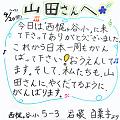 山田さんへ
6/20(月)
今日は、西根が谷小に来
て下さってありがとうございました。
これから5日本一周もがん
ばって下さい。おうえんして
ます。そして、私たちも、山田
さんにやくだてるように
がんばります。
西谷小 ちーろ 石塚 白菓子より